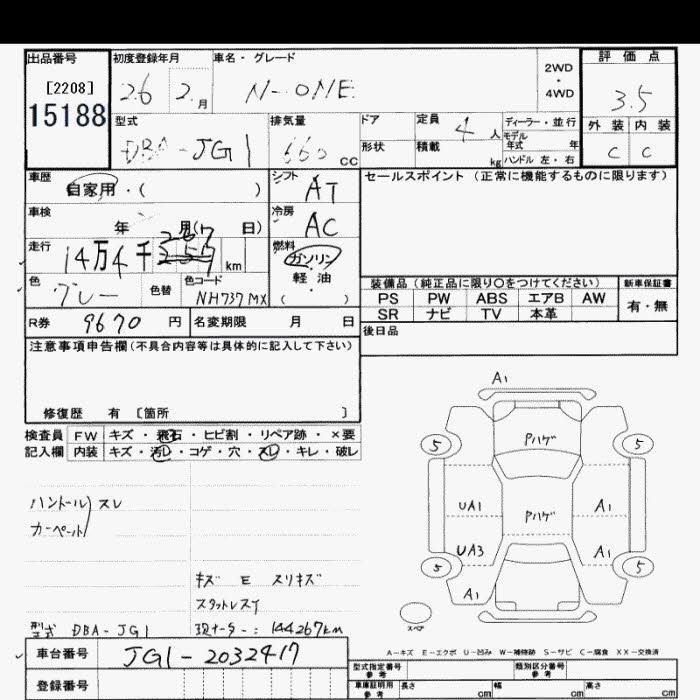 出品番号 初度登録年月 車名・グレード 評価点
[2208] 26年 2月 N-ONE 2WD・4WD 3.5
15188
型式 排気量 ドア 定員 4人 ディーラー・並行 外装 内装
DBA-JG1 660cc 形状 積載 kg モデル年式 年 C C
ハンドル 左・右
車歴 自家用・( ) シフト AT セールスポイント(正常に機能するものに限ります)
車検 年 月( 日) 冷房 AC
走行 14万4千267km 燃料 ガソリン
軽油
色 グレー 色替 色コード NH737MX ( )
装備品(純正品に限り○をつけてください) 新車保証書
PS PW ABS エアB AW 有・無
SR ナビ TV 本革
R券 9670円 名変期限 月 日 後日品
注意事項申告欄(不具合内容等は具体的に記入して下さい)
修復歴 有 [箇所 ]
検査員 FW キズ・飛石・ヒビ割・リペア跡・×要
記入欄 内装 キズ・汚レ・コゲ・穴・スレ・キレ・破レ
A1
5 Pハゲ 5
ハンドル スレ
カーペット
UA1 Pハゲ A1
UA3 A1
5 5
A1
キズ E スリキズ
スタットレスイ
スペア
型式 DBA-JG1 現メーター: 144267km
A-キズ E-エクボ U-凹み W-補修跡 S-サビ C-腐食 XX-交換済
車台番号 JG1-2032417
型式指定番号 参考 類別区分番号 参考
登録番号
車庫証明用 参考 長さ cm 幅 cm 高さ cm